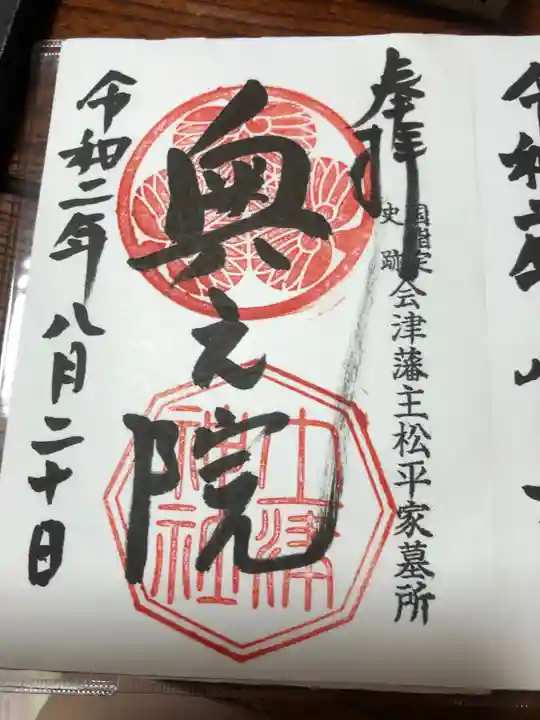 奉拝
国指定史跡
会津藩主松平家墓所
奥之院
土津神社
令和二年八月二十日